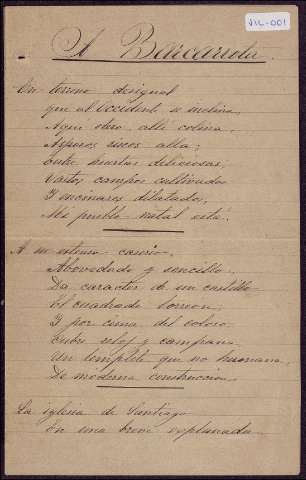 VIL-001
A Barcarrota.
En terreno desigual
que al Occidente se inclina,
Aqui otero, alli colina,
Asperos riscos alla;
Entre huertas deliciosas,
Vastos campos cultivados
Y encinares dilatados,
Mi pueblo natal está.
A un estenso caserio,
Abovedado y sencillo,
Da caracter de un castillo
El cuadrado torreon.
Y por cima del coloso
Cubre reloj y campana
Un templete que no
De moderna construccion.
La iglesia de Santiago
En una breve esplanada